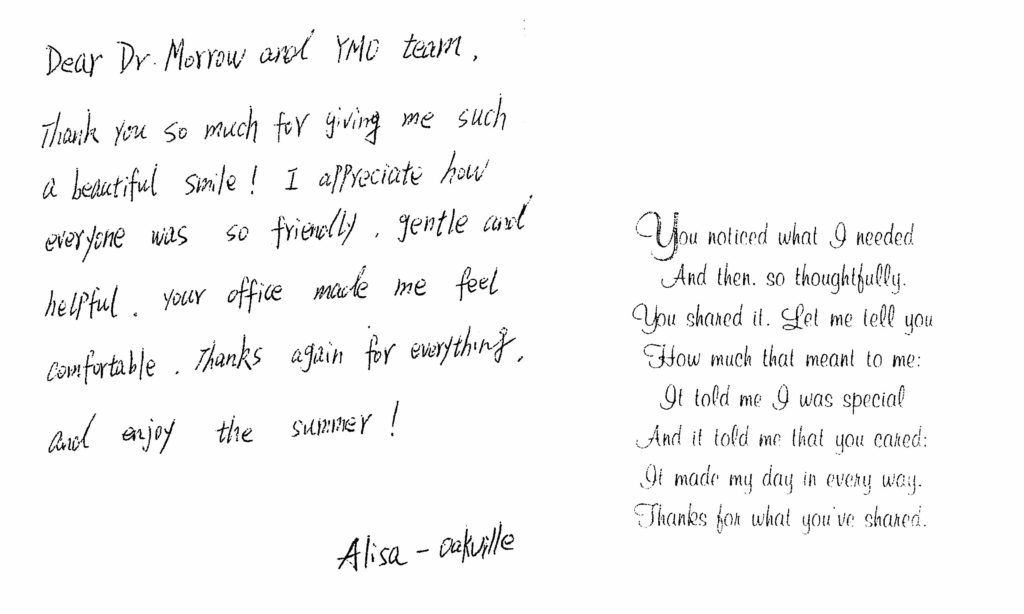 Dear Dr. Morrow and YMO team,
Thank you so much for giving me such
a beautiful smile! I appreciate how
everyone was so friendly, gentle and
helpful. Your office made me feel
comfortable. Thanks again for everything,
and enjoy the summer!
Alisa - Oakville
You noticed what I needed
And then, so thoughtfully,
You shared it. Let me tell you
How much that meant to me:
It told me I was special
And it told me that you cared;
It made my day in every way.
Thanks for what you've shared.